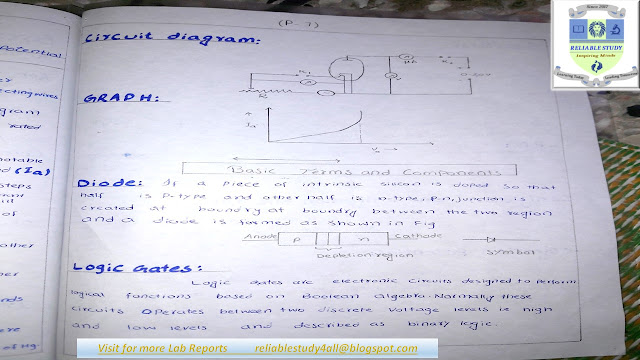 (P-7)
Circuit diagram:
GRAPH:
Ia
Basic Terms and Components
Diode: If a piece of intrinsic silicon is doped so that
half is P-type and other half is n-type, P-n, junction is
created at boundry at boundry between the two region
and a diode is formed as shown in Fig
Anode P n Cathode
Depletion region
Symbol
Logic Gates:
Logic Gates are electronic circuits designed to perform
logical functions based on Boolean algebra. Normally these
circuits operates between two discrete voltage levels ie high
and low levels and described as binary logic.
Potential
ecting wires
gram
rated
(Ia)
steps
of
other
ber
nds
ere
of Hg.
Since 2007
RELIABLE STUDY
Visit for more Lab Reports reliablestudy4all@blogspot.com